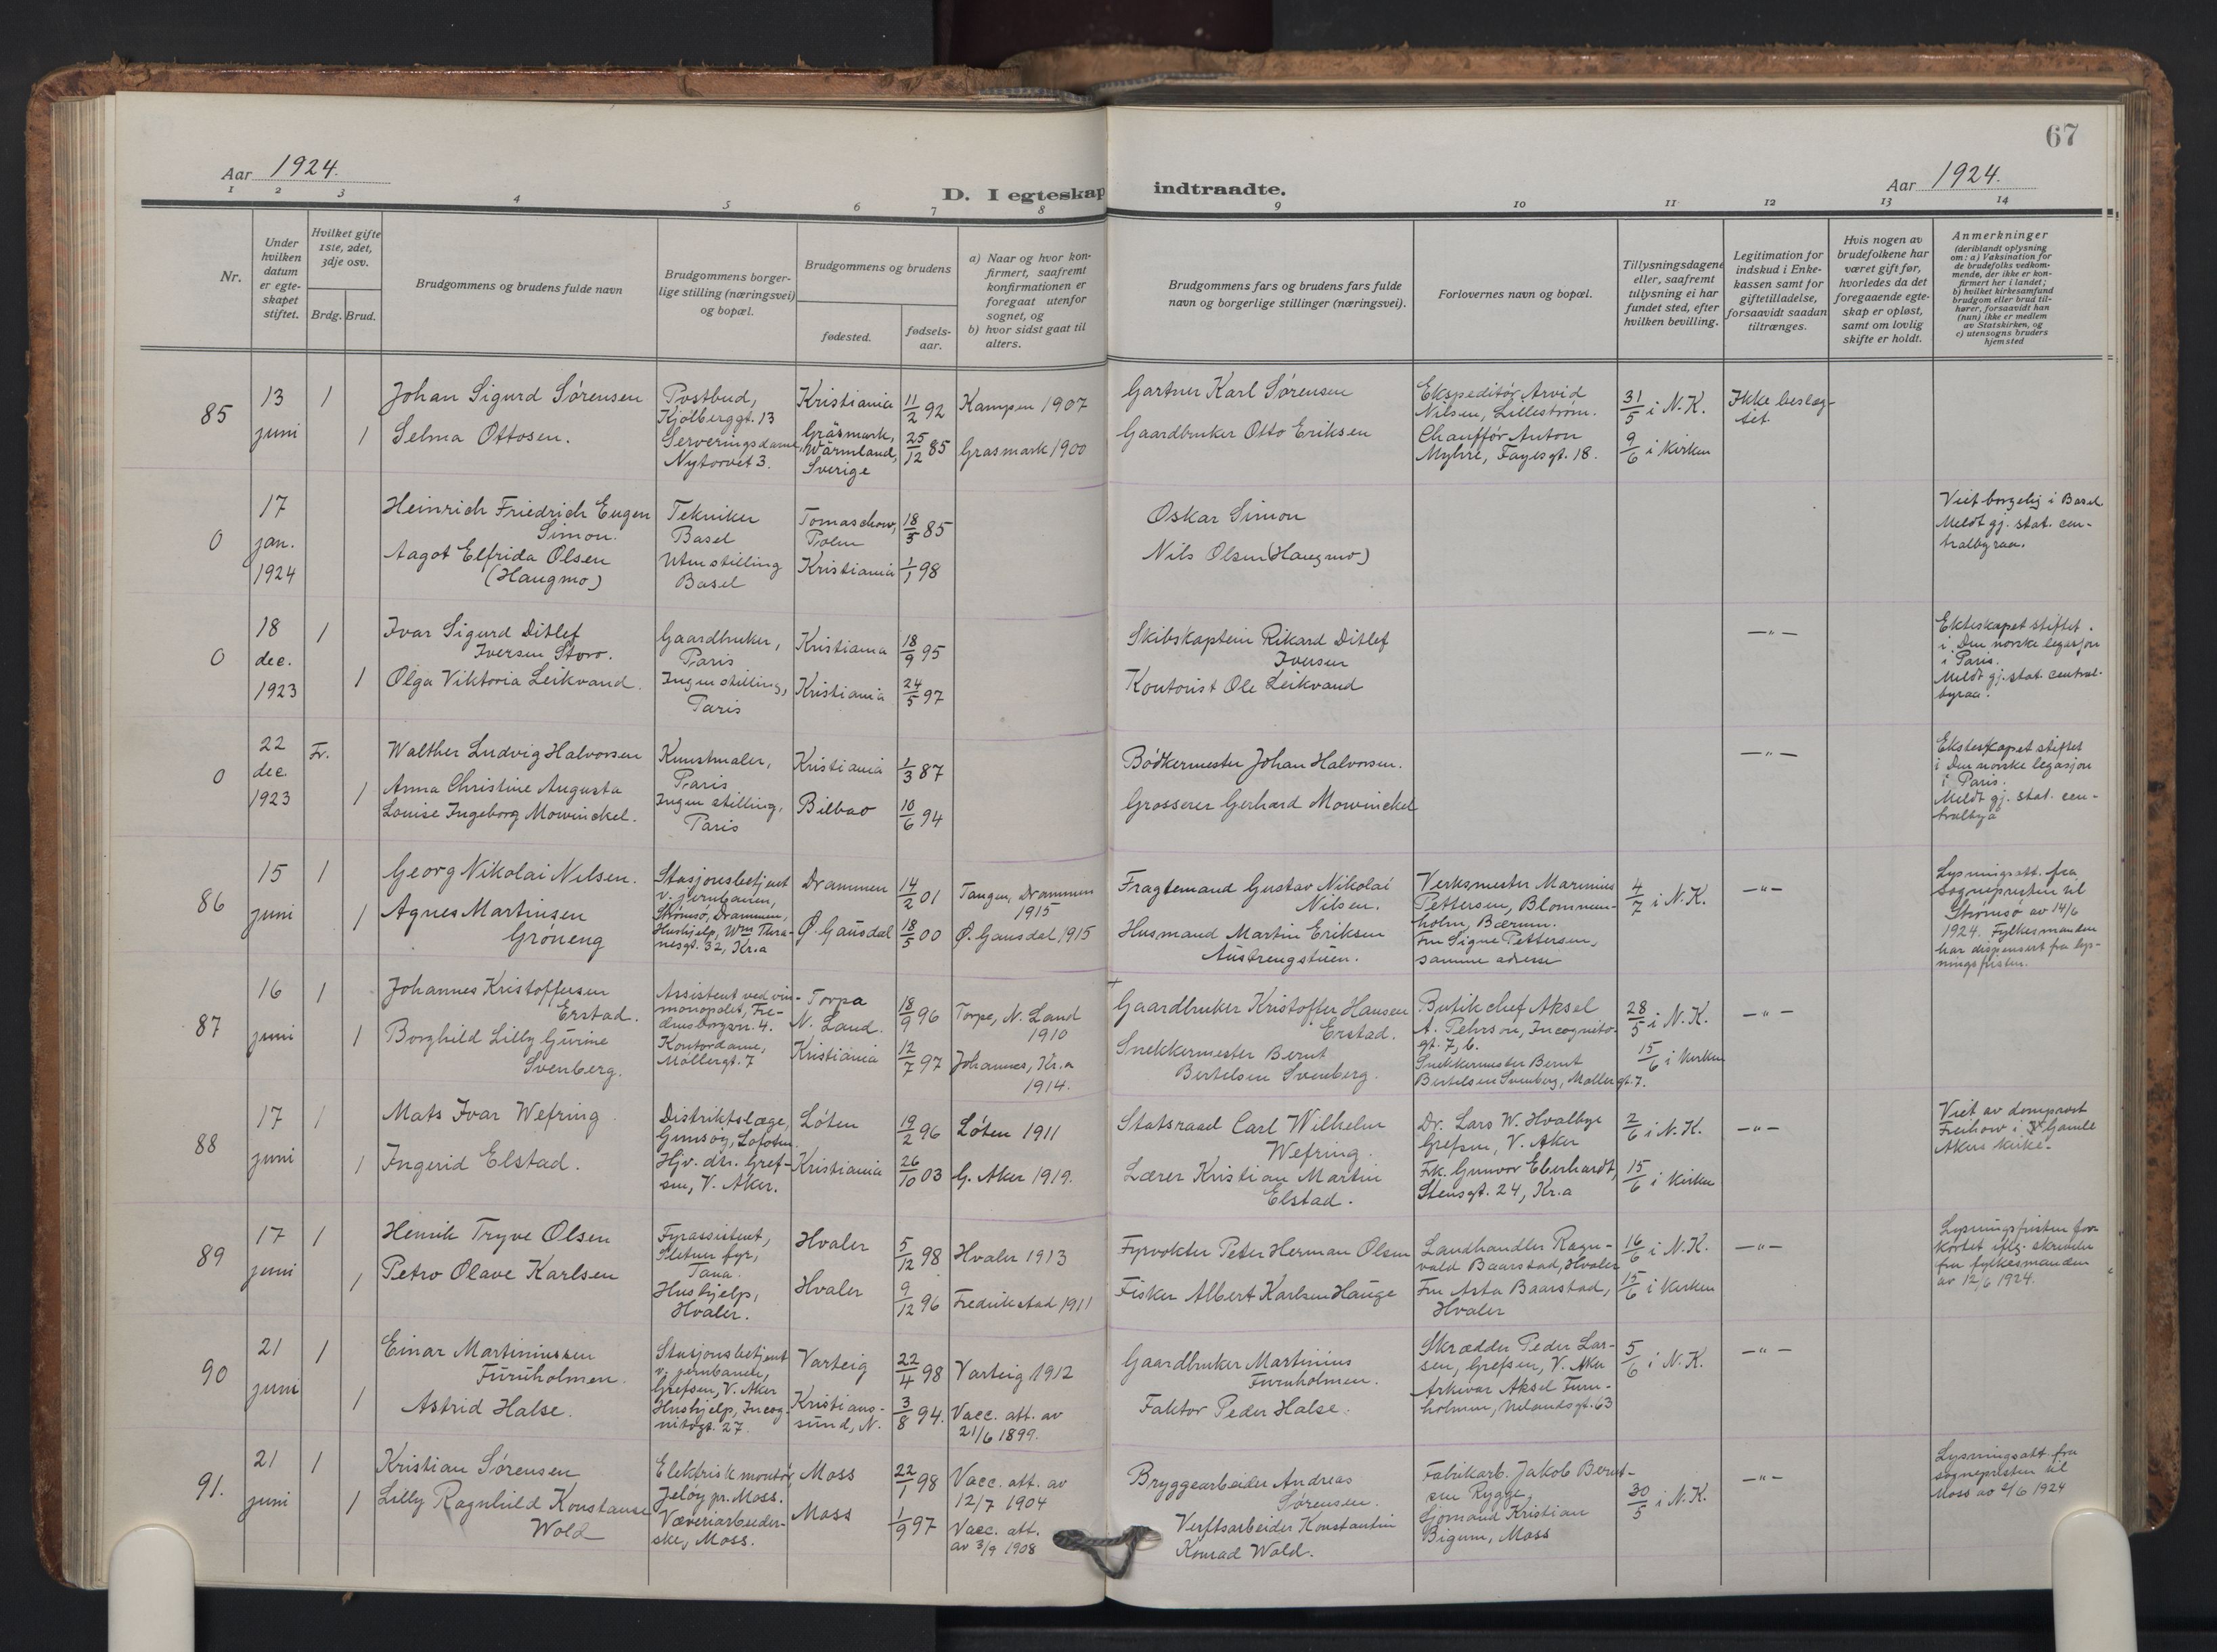 67
Aar 1924.
D. I egteskap indtraadte.
Aar 1924.
1 2 3 4 5 6 7 8 9 10 11 12 13 14
Nr.
Under hvilken datum er egteskapet stiftet.
Hvilket gifte 1ste, 2det, 3dje osv.
Brdg. Brud.
Brudgommens og brudens fulde navn
Brudgommens borgerlige stilling (næringsvei) og bopæl.
Brudgommens og brudens
fødested.
fødselsaar.
a) Naar og hvor konfirmert, saafremt konfirmationen er foregaat utenfor sognet, og
b) hvor sidst gaat til alters.
Brudgommens fars og brudens fars fulde navn og borgerlige stillinger (næringsvei).
Forlovernes navn og bopæl.
Tillysningsdagene eller, saafremt tillysning ei har fundet sted, efter hvilken bevilling.
Legitimation for indskud i Enkekassen samt for giftetilladelse, forsaavidt saadan tiltrænges.
Hvis nogen av brudefolkene har været gift før, hvorledes da det foregaaende egteskap er opløst, samt om lovlig skifte er holdt.
Anmerkninger
(deriblandt oplysning om: a) Vaksination for de brudefolks vedkommende, der ikke er konfirmert her i landet;
b) hvilket kirkesamfund brudgom eller brud tilhører, forsaavidt han (hun) ikke er medlem av Statskirken, og
c) utensogns bruders hjemsted
85
13 juni
1
Johan Sigurd Sørensen
Postbud, Kjølberggt. 13
Kristiania
11/2 92
Kampen 1907
Gartner Karl Sørensen
Ekspeditør Arvid Nilsen, Lillestrøm.
31/5 i N.K.
Ikke beslægtet.
1
Selma Ottosen.
Serveringsdame, Nytorvet 3.
Gräsmark, Wärmland, Sverige
25/12 85
Grasmark 1900
Gaardbruker Otto Eriksen
Chauffør Anton Myhre, Fayesgt. 18.
9/6 i kirken
0
17 jan. 1924
Heinrich Friedrich Eugen Simon.
Tekniker Basel
Tomaschow, Polen
18/5 85
Oskar Simon
Viet borgelig i Basel
Meldt gj. stat. centralbyraa.
Aagot Elfrida Olsen (Haugmo)
Uten stilling Basel
Kristiania
1/1 98
Nils Olsen (Haugmo)
0
18 dec. 1923
1
Ivar Sigurd Ditlef Iversen Storo.
Gaardbruker, Paris
Kristiania
18/9 95
Skibskaptein Rikard Ditlef Iversen
—"—
Ekteskapet stiftet i Den norske legasjon i Paris.
Meldt gj. stat. centralbyraa.
1
Olga Viktoria Leikvand.
Ingen stilling, Paris
Kristiania
24/5 97
Kontorist Ole Leikvand
0
22 dec. 1923
Fr.
Walther Ludvig Halvorsen
Kunstmaler, Paris
Kristiania
1/3 87
Bødkermester Johan Halvorsen.
—"—
Ekteskapet stiftet i Den norske legasjon i Paris.
Meldt gj. stat. centralbyå
1
Anna Christine Augusta Louise Ingeborg Mowinckel.
Ingen stilling, Paris
Bilbao
10/6 94
Grosserer Gerhard Mowinckel
86
15 juni
1
Georg Nikolai Nilsen.
Stasjonsbetjent v. jernbanen, Strømsø, Drammen,
Drammen
14/2 01
Tangen, Drammen 1915
Fragtemand Gustav Nikolai Nilsen.
Verksmester Marinius Pettersen, Blommenholm, Bærum.
4/7 i N.K.
—"—
Lysningsatt. fra sognepresten til Strømsø av 14/6 1924. Fylkesmanden har dispensert fra lysningsfristen.
1
Agnes Martinsen Grøneng
Hushjelp, Wm Thranesgt. 32, Kr.a
Ø. Gausdal
18/5 00
Ø. Gausdal 1915
Husmand Martin Eriksen Austrengstuen.
Fru Signe Pettersen, samme adresse
87
16 juni
1
Johannes Kristoffersen Erstad.
Assistent ved vinmonopolet, Fredensborgvn. 4.
Torpa N. Land.
18/9 96
Torpe, N. Land 1910
+
Gaardbruker Kristoffer Hansen Erstad.
Butikchef Aksel A. Pehrson, Incognitogt. 7, b.
28/5 i N.K.
—"—
1
Borghild Lilly Gurine Svenberg.
Kontordame, Møllergt. 7
Kristiania
12/7 97
Johannes, Kr.a 1914.
Snekkermester Bernt Bertelsen Svenberg.
Snekkermester Bernt Bertelsen Svenberg, Møllergt. 7.
15/6 i kirken
88
17 juni
1
Mats Ivar Wefring.
Distriktslæge, Gimsøy, Lofoten.
Løten
19/2 96
Løten 1911
Statsraad Carl Wilhelm Wefring.
Dr. Lars W. Hvalbye Grefsen, V. Aker
2/6 i N.K.
—"—
Viet av domprost Freihow i Gamle Akers kirke.
1
Ingerid Elstad.
Hjv. dtr. Grefsen, V. Aker.
Kristiania
26/10 03
G. Aker 1919.
Lærer Kristian Martin Elstad.
Frk. Gunvor Eberhardt, Stensgt. 24, Kr.a
15/6 i kirken
89
17 juni
1
Henrik Tryve Olsen
Fyrassistent, Sletnes fyr, Tana.
Hvaler
5/12 98
Hvaler 1913
Fyrvokter Peter Herman Olsen
Landhandler Ragnvald Baarstad, Hvaler
16/6 i N.K.
—"—
Lysningsfristen forkortet iflg. skrivelse fra fylkesmanden av 12/6 1924.
1
Petro Olave Karlsen
Hushjelp, Hvaler.
Hvaler
9/12 96
Fredrikstad 1911
Fisker Albert Karlsen Hauge
Fru Asta Baarstad, Hvaler
15/6 i kirken
90
21 juni
1
Einar Martiniussen Furuholmen.
Stasjonsbetjent v. jernbanen, Grefsen, V. Aker
Varteig
22/4 98
Varteig 1912
Gaardbruker Martinius Furuholmen.
Skrædder Peder Larsen, Grefsen, V. Aker
5/6 i N.K.
—"—
1
Astrid Halse.
Hushjelp, Incognitogt. 27.
Kristianssund, N.
3/8 94.
Vacc. att. av 21/6 1899.
Faktor Peder Halse.
Arkivar Aksel Furuholmen, Uelandsgt. 63
91.
21 juni
1
Kristian Sørensen
Elektrisk montør, Jeløy pr. Moss.
Moss
22/1 98
Vacc. att. av 12/7 1904
Bryggearbeider Andreas Sørensen.
Fabrikarb. Jakob Berntsen Rygge,
30/5 i N.K.
—"—
Lysningsatt. fra sognepresten til Moss av 2/6 1924
1
Lilly Ragnhild Konstanse Wold
Væveriarbeiderske, Moss.
Moss
1/9 97
Vacc. att. av 3/9 1908
Verftsarbeider Konstantin Konrad Wold.
Sjømand Kristian Bigum, Moss